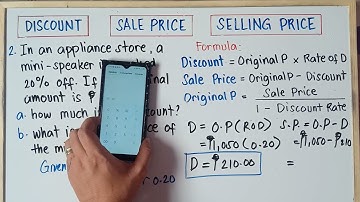 DISCOUNT
SALE PRICE
SELLING PRICE
2. In an appliance store, a
mini-speaker
20% off. If
amount is ₱
a. how much count?
b. what i ce of
the mi
Given
0.20
Formula:
Discount = Original P x Rate of D
Sale Price = Original P - Discount
Original P = Sale Price
1 - Discount Rate
D = O.P (RoD)
= ₱1,050 (0.20)
D = ₱210.00
S.P. = O.P - D
= ₱1,050 - ₱210
=